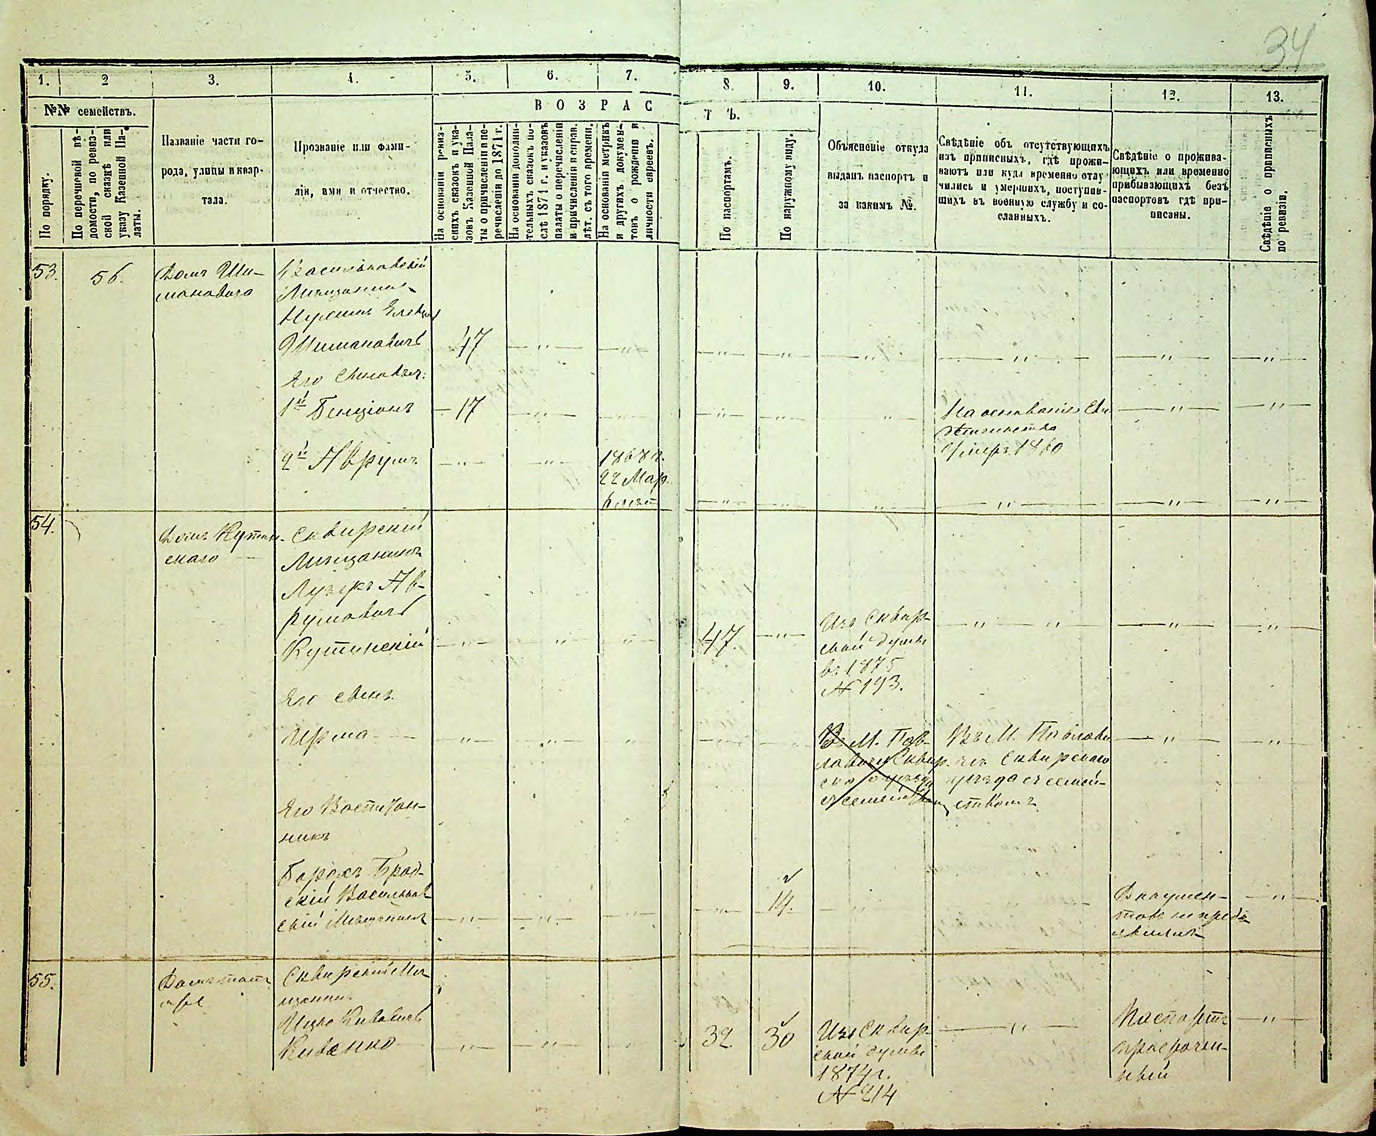 34
1.
2
3.
4.
5.
6.
7.
8.
9.
10.
11.
12.
13.
№№ семействъ.
ВОЗРАСТЪ.
По порядку.
По перечневой вѣ-
домости, по ревиз-
ской сказкѣ или
указу Казенной Па-
латы.
Названіе части го-
рода, улицы и квар-
тала.
Прозваніе или фами-
лія, имя и отчество.
На основаніи ревиз-
скихъ сказокъ и ука-
зовъ Казенной Пала-
ты о причисленіи и пе-
речисленіи до 1871 г.
На основаніи дополни-
тельныхъ сказокъ по-
слѣ 1871 г. и указовъ
палаты о перечисленіи
и причисленіи и справ.
лѣт. съ того времени.
На основаніи метрикъ
и другихъ докумен-
товъ о рожденіи и
личности евреевъ.
По паспортамъ.
По наружному виду.
Объясненіе откуда
выданъ паспортъ и
за какимъ №.
Свѣдѣніе объ отсутствующихъ
изъ приписныхъ, гдѣ прожи-
ваютъ или куда временно отлу-
чились и умершихъ, поступив-
шихъ въ военную службу и со-
сланныхъ.
Свѣдѣніе о прожива-
ющихъ или временно
прибывающихъ безъ
паспортовъ гдѣ при-
писаны.
Свѣдѣніе о приписныхъ
по ревизіи.
53.
56.
Домъ Ши-
мановича
Васильковскій
Мѣщанинъ
Шимановичъ
47
Его сыновья:
1й Бенціонъ
17
На основаніи Сви-
дѣтельства
умеръ 1860
2й Аврумъ
1868 г.
22 Мар.
6 лѣтъ
54.
Домъ Кутин-
скаго
Сквирскій
Мѣщанинъ
Ав-
румовичъ
Кутинскій
47.
Изъ Сквир-
ской думы
въ 1875
№ 193.
Его сынъ
Ирма
Въ М. Пав-
лавичъ Сквир-
ско уѣзда
съ семейством
Въ М. Паволо-
чъ Сквирскаго
уѣзда съ семей-
ствомъ
Его Воспитан-
никъ
Борохъ Брод-
скій Васильков
скій Мѣщанинъ
14.
Докумен-
товъ не предъ
явилъ
55.
Домъ
Сквирскій Мѣ
щанинъ
Ицко
Кивенко
32.
30
Изъ Сквир-
ской думы
1874 г.
№ 214
Паспортъ
просрочен-
ный